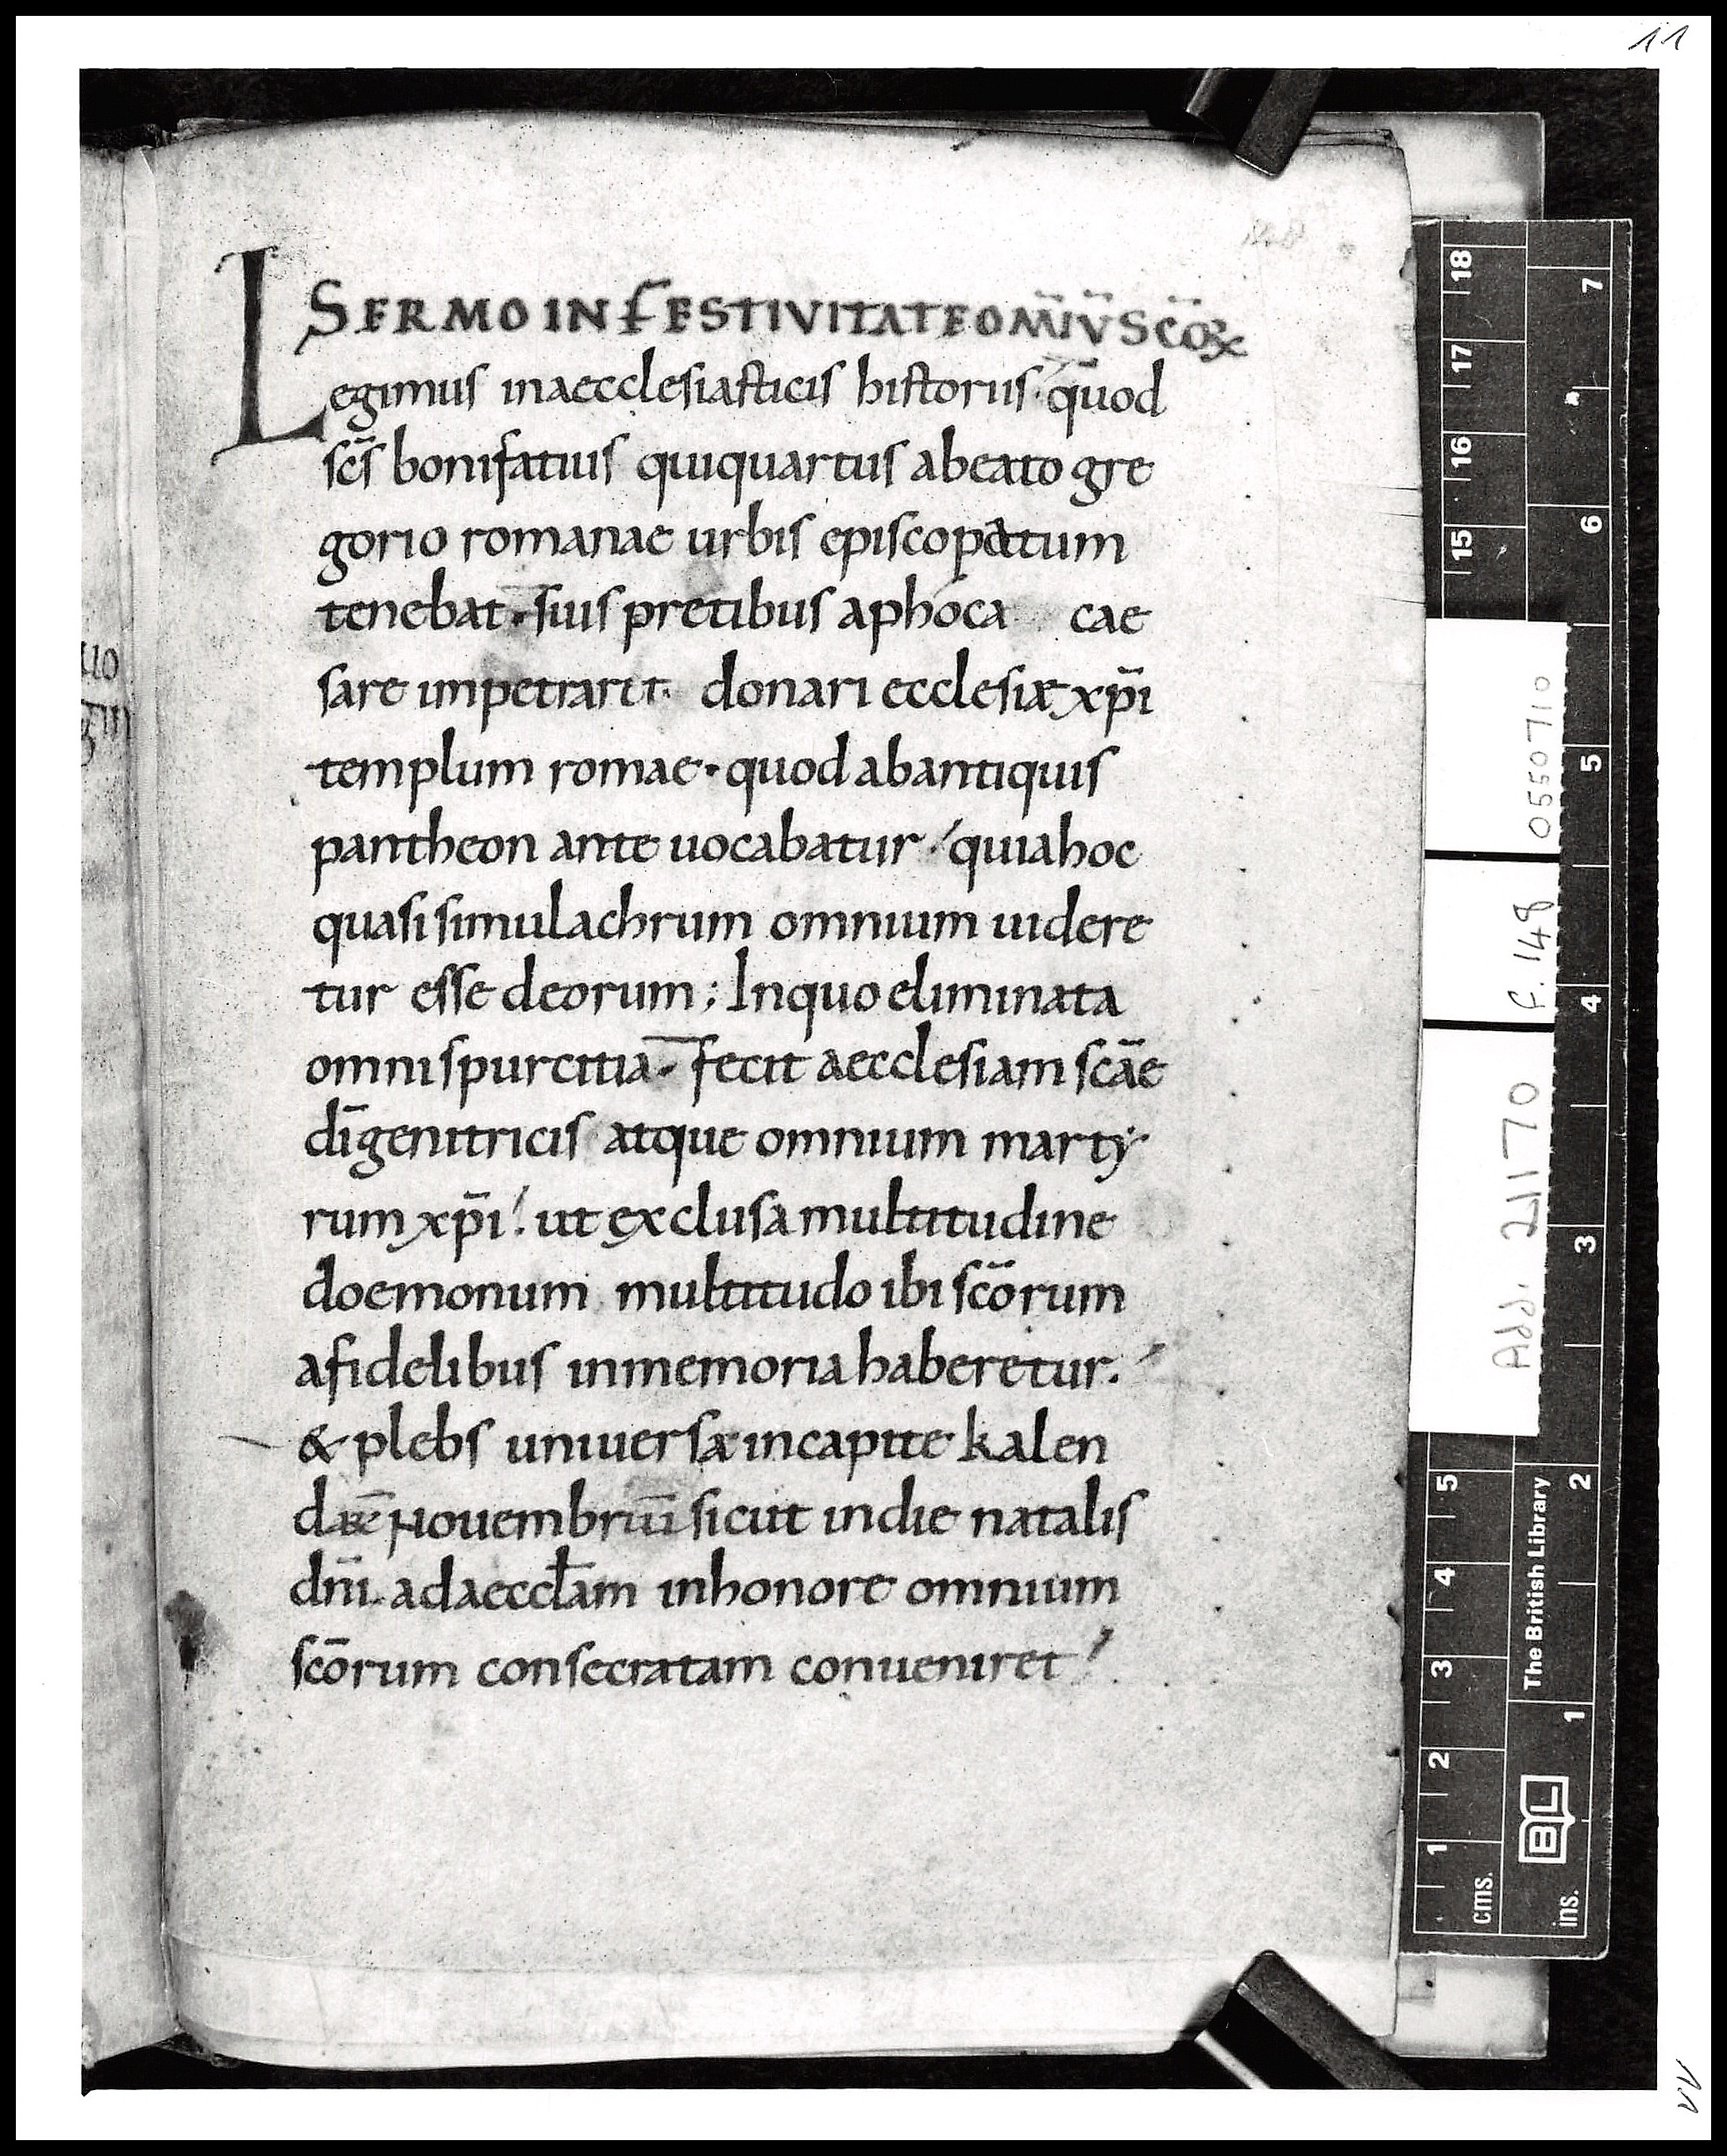 11
SERMO IN FESTIVITATE OM̅IV̅ SC̅OꝜ
Legimus inaecclesiasticis historiis quod
sc̅s bonifatius quiquartus abeato gre
gorio romanae urbis episcopatum
tenebat. suis pretibus aphoca cae
sare impetrarit. donari ecclesiæ xp̅i
templum romae. quod abantiquis
pantheon ante uocabatur quiahoc
quasi simulachrum omnium uidere
tur esse deorum; Inquo eliminata
omni spurcitia. fecit aecclesiam sc̅ae
di̅ genitricis atque omnium marty
rum xp̅i ut exclusa multitudine
doemonum multitudo ibi sc̅orum
afidelibus inmemoria haberetur.
& plebs uniuersa incapite kalen
Nouembriu̅ sicut indie natalis
dn̅i. adaeccl̅am inhonore omnium
sc̅orum consecratam conueniret
0550710
f. 148
Add. 21170
18 17 16 15
7 6 5 4 3 2 1
5 4 3 2 1
The British Library
BL
cms.
ins.
11